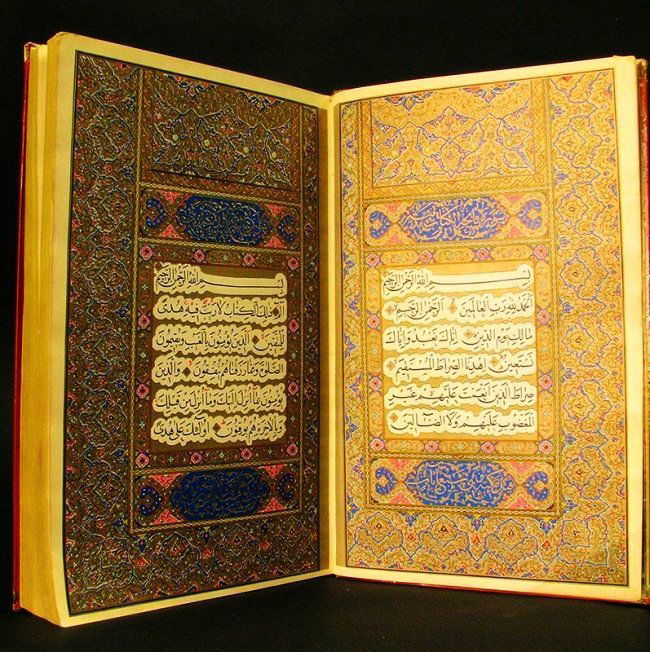 سورة فاتحة الكتاب
بسم الله الرحمن الرحيم
الحمد لله رب العالمين الرحمن الرحيم
مالك يوم الدين اياك نعبد واياك
نستعين اهدنا الصراط المستقيم
صراط الذين انعمت عليهم غير
المغضوب عليهم ولا الضالين
بسم الله الرحمن الرحيم
الم ذلك الكتاب لا ريب فيه هدى
للمتقين الذين يؤمنون بالغيب ويقيمون
الصلوة ومما رزقناهم ينفقون والذين
يؤمنون بما انزل اليك وما انزل من قبلك
وبالاخرة هم يوقنون اولئك على هدى